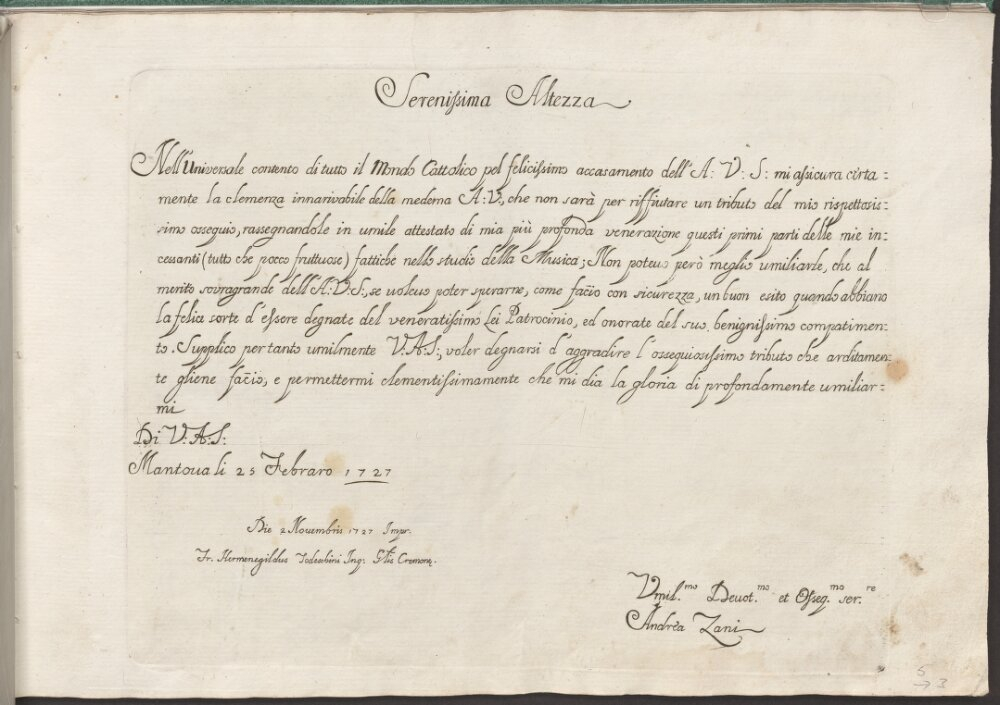 Serenissima Altezza
Nell'Universale contento di tutto il Mondo Cattolico pel felicissimo accasamento dell'A: V: S: mi assicura certa=
mente la clemenza innarivabile della medema A:V:, che non sarà per riffiutare un tributo del mio rispettosis=
simo ossequio, rassegnandole in umile attestato di mia più profonda venerazione questi primi parti delle mie in=
cessanti (tutto che pocco fruttuose) fattiche nello studio della Musica; Non potevo però meglio umiliarle, che al
merito sovragrande dell'A:V:S:, se volevo poter sperarne, come faccio con sicurezza, un buon esito quando abbiano
la felice sorte d'essere degnate del veneratissimo Lei Patrocinio, ed onorate del suo benignissimo compatimen=
to. Supplico per tanto umilmente V:A:S:, voler degnarsi d'aggradire l'ossequiosissimo tributo che arditamen=
te gliene faccio, e permettermi clementissimamente che mi dia la gloria di profondamente umiliar=
mi
Di V:A:S:
Mantova li 25 Febraro 1727
Die 2 Novembris 1727 Impr.
Fr. Hermenegildus Todeschini Inq: Cremonę.
Vmil.mo Devot.mo et Osseq.mo ser.re
Andrèa Zani
5
→ 3